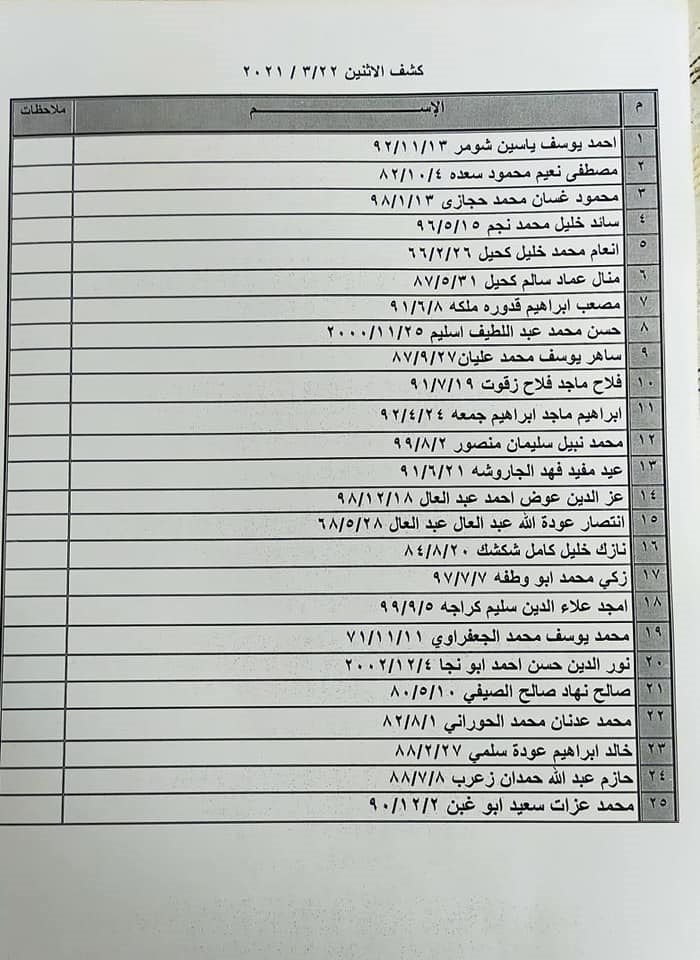 كشف الاثنين ٢٠٢١ / ٣/٢٢
م الإســـــــــــــم ملاحظات
١ احمد يوسف ياسين شومر ٩٢/١١/١٣
٢ مصطفى نعيم محمود سعده ٨٢/١٠/٤
٣ محمود غسان محمد حجازى ٩٨/١/١٣
٤ سائد خليل محمد نجم ٩٦/٥/١٥
٥ انعام محمد خليل كحيل ٦٦/٢/٢٦
٦ منال عماد سالم كحيل ٨٧/٥/٣١
٧ مصعب ابراهيم قدوره ملكه ٩١/٦/٨
٨ حسن محمد عبد اللطيف اسليم ٢٠٠٠/١١/٢٥
٩ ساهر يوسف محمد عليان٨٧/٩/٢٧
١٠ فلاح ماجد فلاح زقوت ٩١/٧/١٩
١١ ابراهيم ماجد ابراهيم جمعه ٩٢/٤/٢٤
١٢ محمد نبيل سليمان منصور ٩٩/٨/٢
١٣ عيد مفيد فهد الجاروشه ٩١/٦/٢١
١٤ عز الدين عوض احمد عبد العال ٩٨/١٢/١٨
١٥ انتصار عودة الله عبد العال عبد العال ٦٨/٥/٢٨
١٦ نازك خليل كامل شكشك ٨٤/٨/٢٠
١٧ زكي محمد ابو وطفه ٩٧/٧/٧
١٨ امجد علاء الدين سليم كراجه ٩٩/٩/٥
١٩ محمد يوسف محمد الجعفراوي ٧١/١١/١١
٢٠ نور الدين حسن احمد ابو نجا ٢٠٠٢/١٢/٤
٢١ صالح نهاد صالح الصيفي ٨٠/٥/١٠
٢٢ محمد عدنان محمد الحوراني ٨٢/٨/١
٢٣ خالد ابراهيم عودة سلمي ٨٨/٢/٢٧
٢٤ حازم عبد الله حمدان زعرب ٨٨/٧/٨
٢٥ محمد عزات سعيد ابو غبن ٩٠/١٢/٢